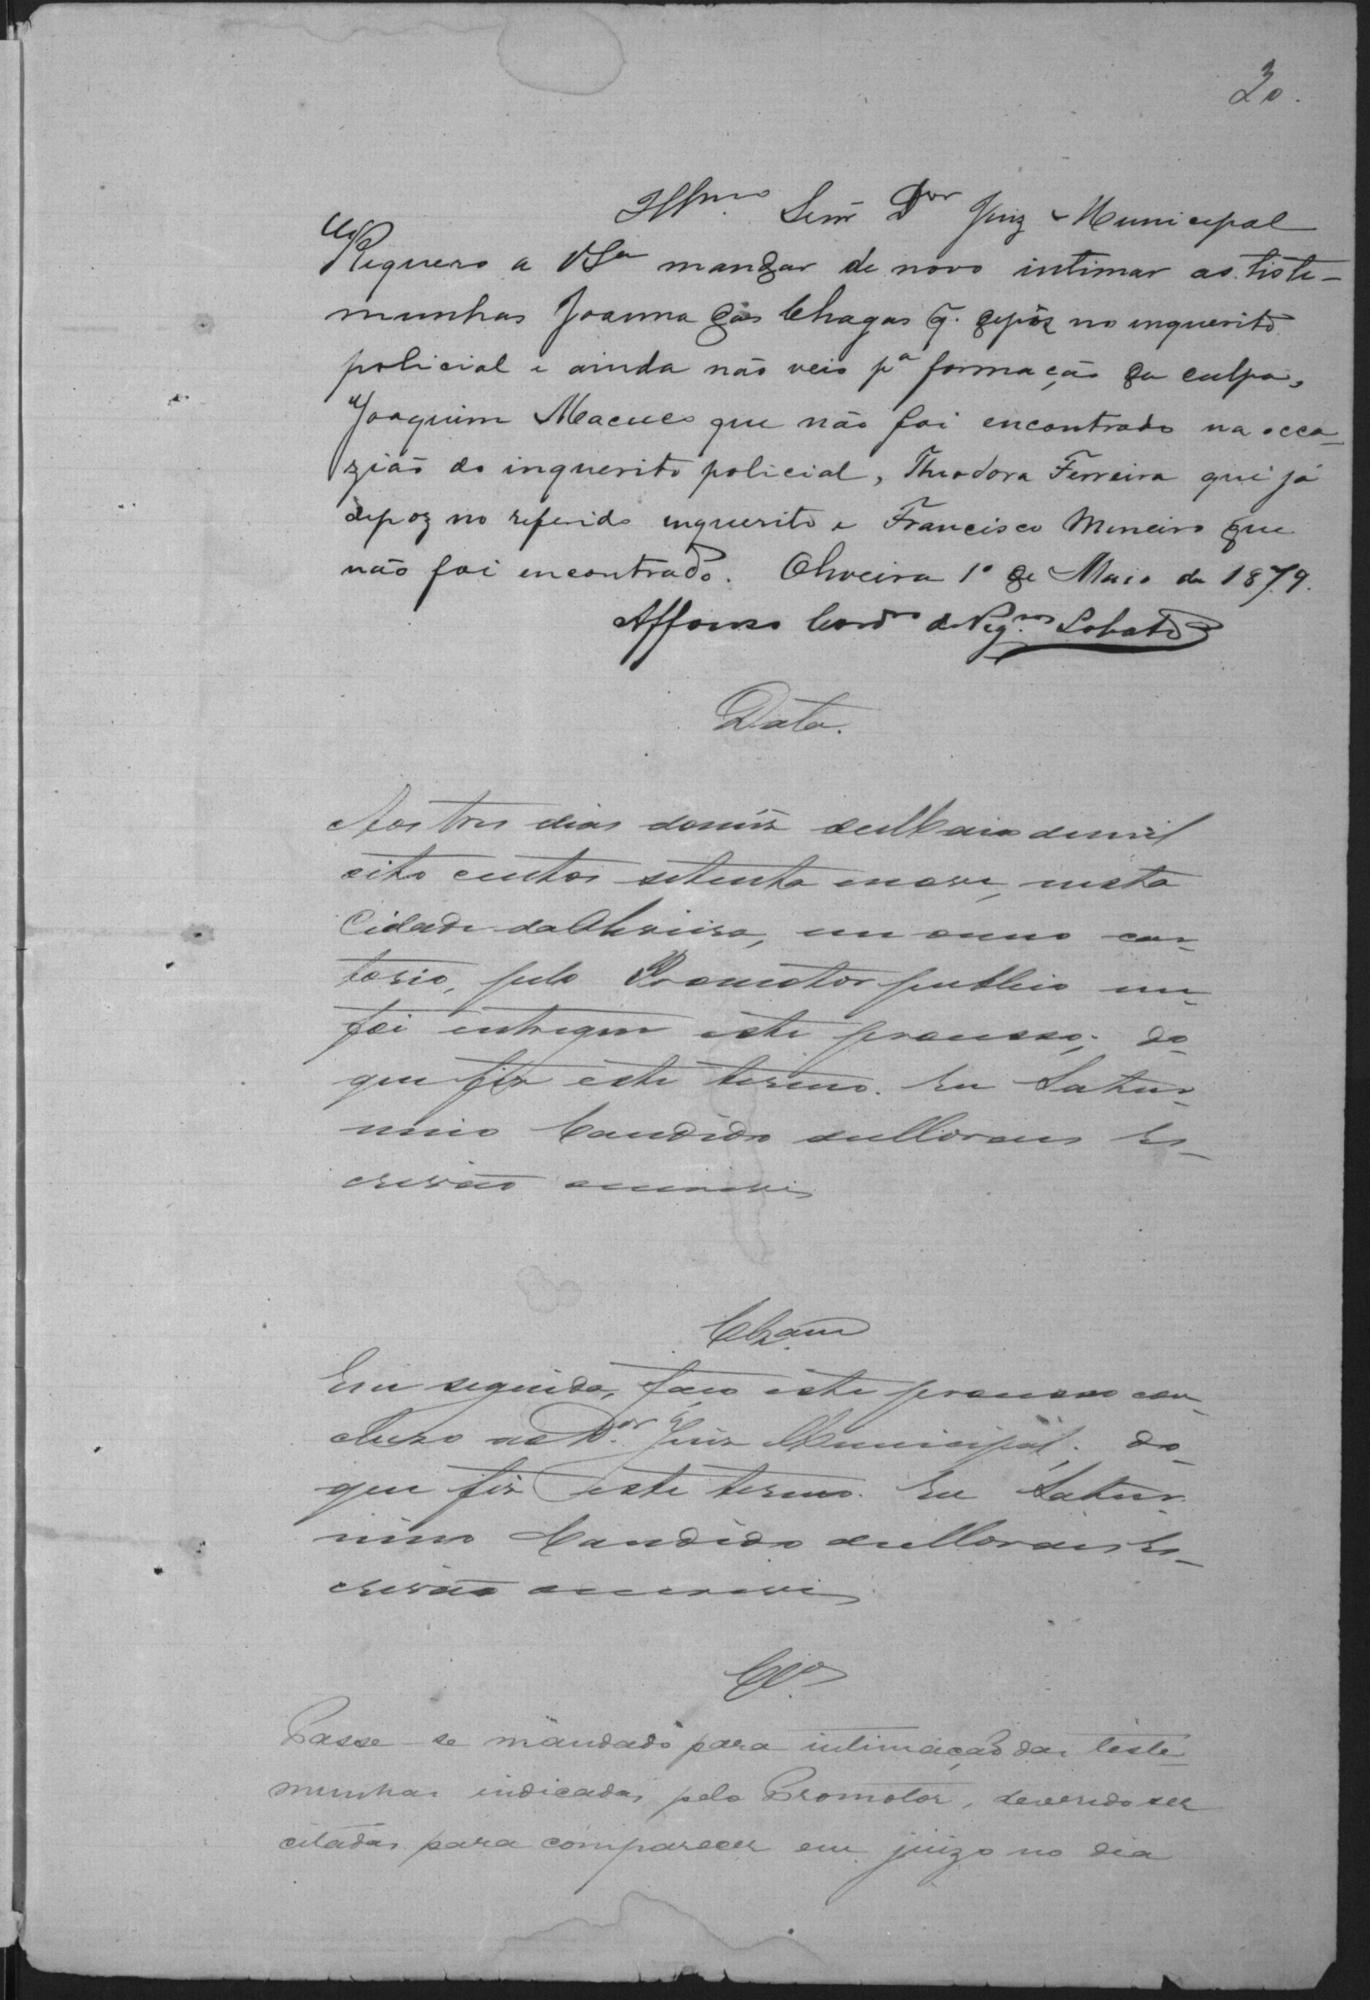 30.
Illmo. Senr Dor Juiz Municipal
Requero a VSa mandar de novo intimar as teste-
munhas Joanna das Chagas q. depôz no inquerito
policial e ainda não veis pa formação da culpa,
Joaquim Macuco que não foi encontrado na occa-
zião do inquerito policial, Theodora Ferreira que já
depoz no referido inquerito e Francisco Mineiro que
não foi encontrado. Oliveira 1º de Maio de 1879.
Affonso Cordro de Negros Lobato
Data.
Aos tres dias do mês de Maio de mil
oito centos setenta e nove, nesta
Cidade da Oliveira, em meu car-
torio, pelo Promotor publico me
foi entregue este processo; do
que fiz este termo. Eu Satur-
nino Candido de Moraes Es-
crivão escrevi
Clzam
Em seguida, faço este processo con-
cluso ao Dor Juiz Municipal; do
que fiz este termo. Eu Satur-
nino Candido de Moraes Es-
crivão escrevi
Clo.
Passe-se mandado para intimação das teste-
munhas indicadas pelo Promotor, devendo ser
citadas para comparecer em juizo no dia